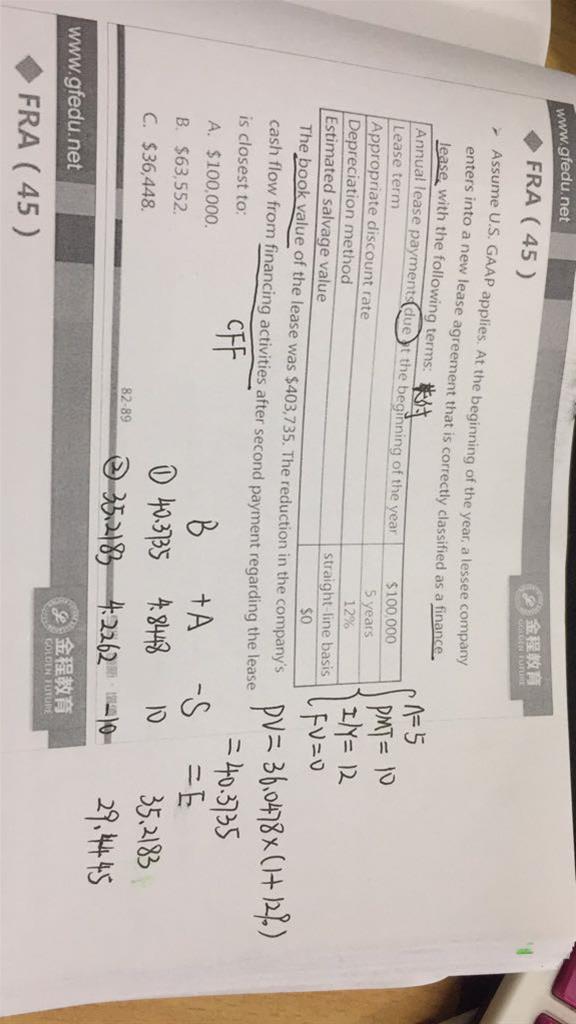 www.gfedu.net
◆ FRA ( 45 )
金程教育
GOLDEN FUTURE
➢ Assume U.S. GAAP applies. At the beginning of the year, a lessee company
enters into a new lease agreement that is correctly classified as a finance
lease, with the following terms: 先付
Annual lease payments due at the beginning of the year $100,000
Lease term 5 years
Appropriate discount rate 12%
Depreciation method straight-line basis
Estimated salvage value $0
n=5
PMT = 10
I/Y = 12
FV=0
The book value of the lease was $403,735. The reduction in the company's
cash flow from financing activities after second payment regarding the lease
is closest to:
CFF
PV = 36.0478 × (1+12%)
= 40.3735
A. $100,000.
B. $63,552.
C. $36,448.
B +A -S = E
① 40.3735 4.8448 10 35.2183
② 35.2183 4.2262 -10 29.4445
82-89
www.gfedu.net
金程教育
GOLDEN FUTURE
◆ FRA ( 45 )